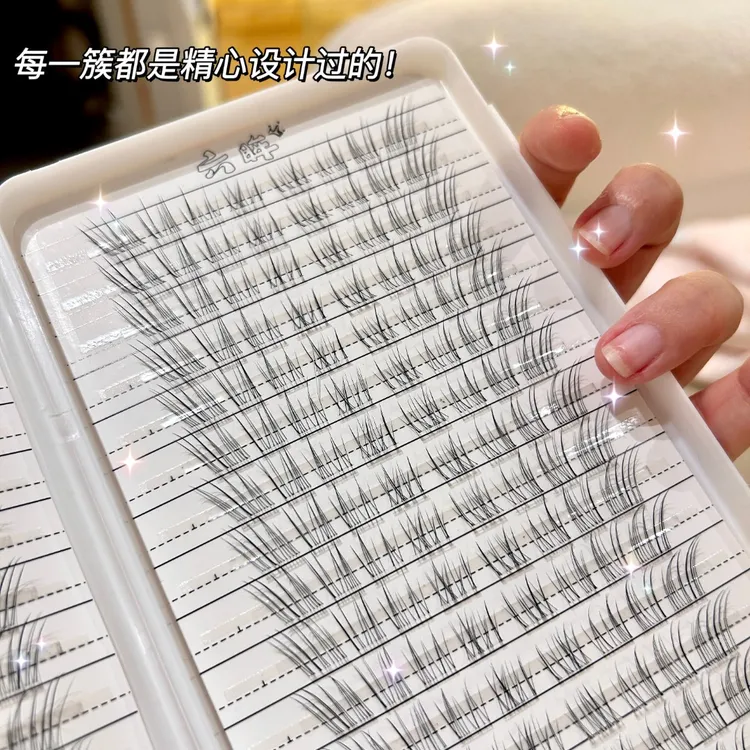 每一簇都是精心设计过的！
六眸